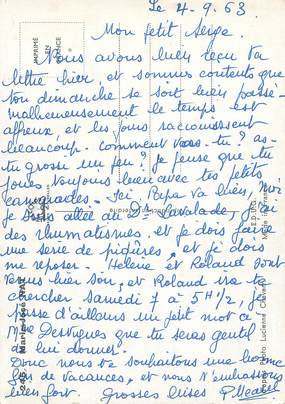 Le 4-9.63
Mon petit Serge.
IMPRIMÉ
EN
FRANCE
Nous avons bien reçu ta
lettre hier, et sommes contents que
ton dimanche se soit bien passé -
malheureusement le temps est
affreux, et les jours raccourcissent
beaucoup. Comment vas-tu? as-
tu grossi un peu? je pense que tu
joues toujours bien avec tes petits
camarades - Ici, Papa va bien, Moi
je suis allée au Dr Lavalade, j'ai
des rhumatismes et je dois faire
une série de piqûres, et je dois
me reposer - Hélène et Roland sont
venus hier soir, et Roland ira te
chercher Samedi 7 à 5H 1/2, je
passe d'ailleurs un petit mot à
Mme que tu seras gentil
de lui donner.
Donc nous te souhaitons une bonne
fin de vacances, et nous t'embrassons
bien fort. Grosses bises
Marie-José